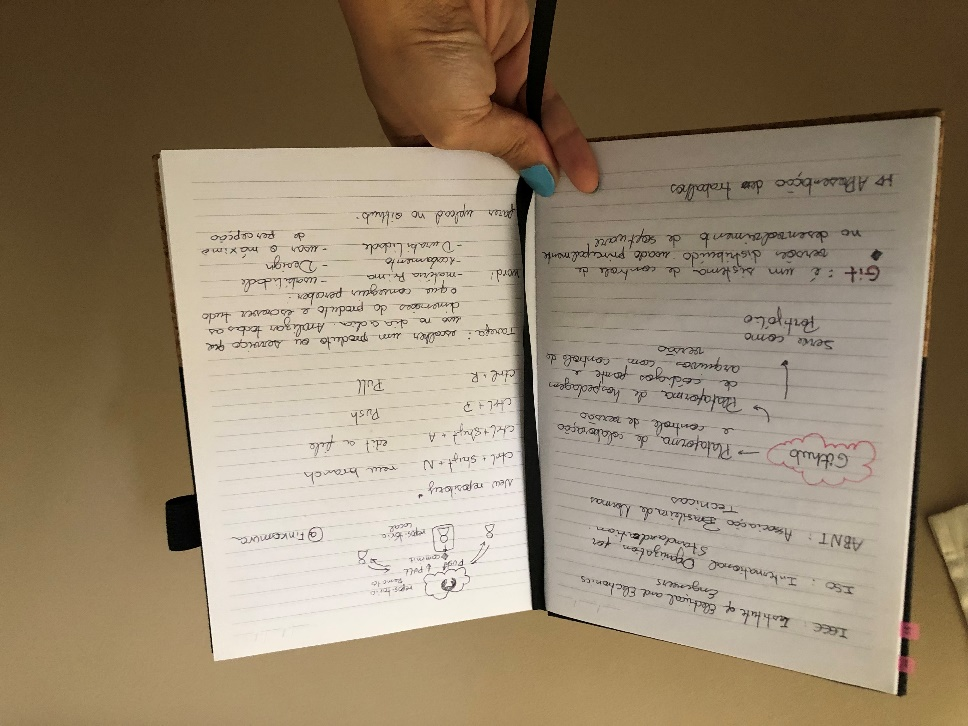 IEEE: Institute of Electrical and Electronics
Engeneers
ISO: International Organization for
Standardization
ABNT: Associação Brasileira de Normas
Tecnicas
Github → Plataforma de colaboração
e controle de versão
Plataforma de hospedagem
de códigos fonte e
arquivos com controle de
versão
Serve como
portfólio
Git: é um sistema de controle de
versão distribuído usado principalmente
no desenvolvimento de software
Apresentação de trabalhos
repositorio
remoto
Push & PULL
commit
repositório
local
New repository
Ctrl + Shift + N new branch
Ctrl + Shift + A edit a file
Ctrl + P Push
Ctrl + R Pull
Tarefa: escolher um produto ou serviço que
uso no dia a dia. Analizar todas as
dimensões do produto e escrever tudo
o que conseguir perceber:
word: - matéria Prima - usabilidade
- Design
- Durabilidade - usar o máximo
de percepção
fazer upload no Github.